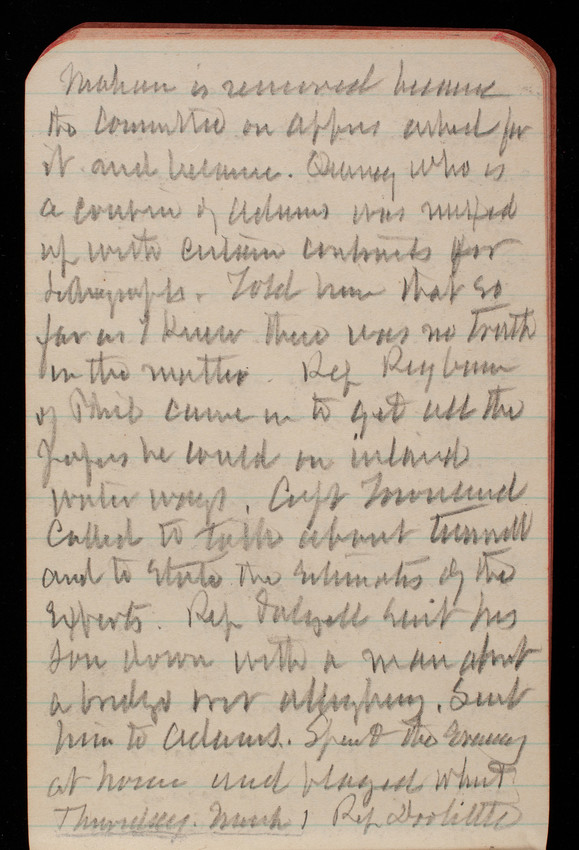 Mahan is removed because
the Committee on Appros asked for
it and because. Quincy who is
a cousin of Adams was mixed
up with certain contracts for
Lithographs. Told him that so
far as I knew there was no truth
in the matter. Rep Reyburn
of Phil came in to get all the
papers he could on inland
water ways. Capt Townsend
Called to talk about tunnell
and to state the estimates of the
Experts. Rep Dalzell sent his
son down with a man about
a bridge over Allegheny. Sent
him to Adams. Spent the Evening
at home and played whist
Thursday. March 1 Rep Doolittle